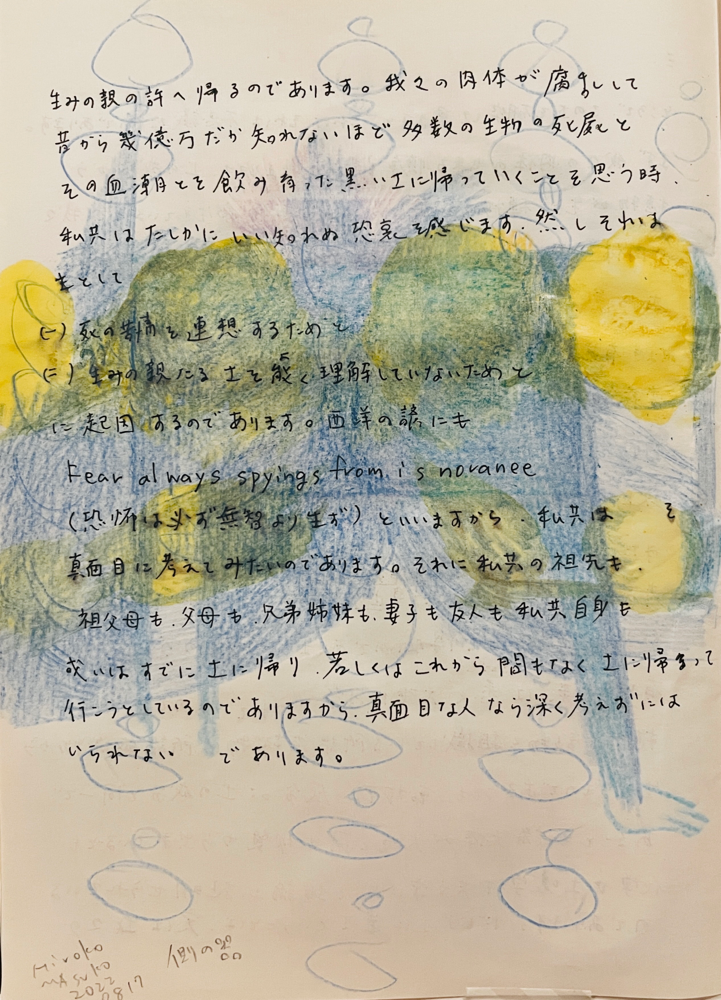 生みの親の許へ帰るのであります。我々の肉体が腐まして
昔から幾億万だか知れないほど多数の生物の死屍と
その血潮とを飲み有った黒い土に帰っていくことを思う時、
私共はたしかにいい知れぬ恐哀を感じます。然しそれは
主として
(一)死の苦痛を連想するためと
(二)生みの親たる土を能く理解していないためと
に起因するのであります。西洋の諺にも
Fear always spyings from is noranee
(恐怖は必ず無智より生ず)といいますから、私共は そ
真面目に考えてみたいのであります。それに私共の祖先も、
祖父母も、父母も、兄弟姉妹も、妻子も友人も私共自身も
或いはすでに土に帰り、若しくはこれから間もなく土に帰まって
行こうとしているのでありますから、真面目な人なら深く考えずには
いられない であります。
Hiroko
MAsuko
2022
0817
側の器